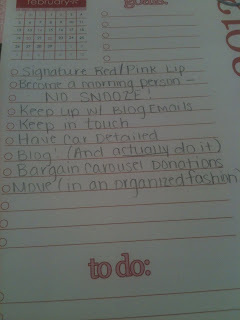 february
goals:
Signature Red/Pink Lip
Become a morning person -
NO SNOOZE!
Keep up w/ Blog Emails
Keep in touch
Have Car Detailed
Blog! (And actually do it)
Bargain Carousel Donations
Move (in an organized fashion)
to do: